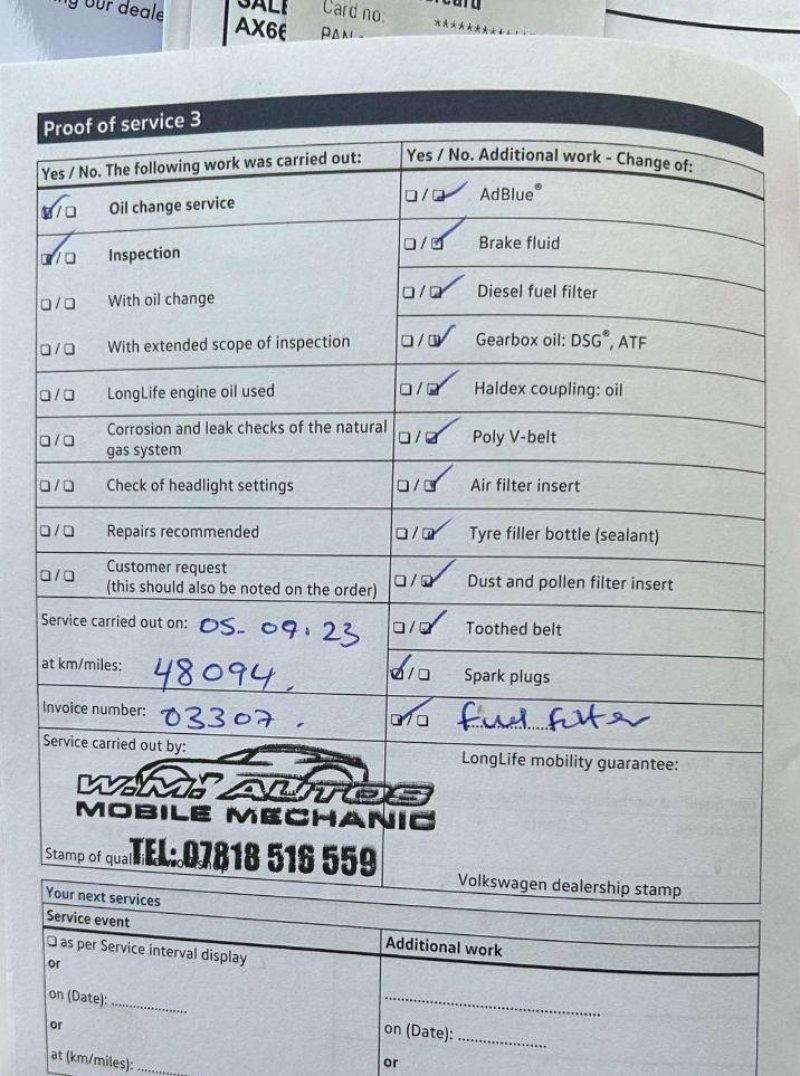 our deale
SALE
AX66
Card no:
************
PAN
Proof of service 3
Yes / No. The following work was carried out:
Oil change service
Inspection
With oil change
With extended scope of inspection
LongLife engine oil used
Corrosion and leak checks of the natural
gas system
Check of headlight settings
Repairs recommended
Customer request
(this should also be noted on the order)
Service carried out on: 05. 09. 23
at km/miles: 48094.
Invoice number: 03307.
Service carried out by:
W.M. AUTOS
MOBILE MECHANIC
TEL: 07818 516 559
Stamp of qualified workshop
Yes / No. Additional work - Change of:
AdBlue®
Brake fluid
Diesel fuel filter
Gearbox oil: DSG®, ATF
Haldex coupling: oil
Poly V-belt
Air filter insert
Tyre filler bottle (sealant)
Dust and pollen filter insert
Toothed belt
Spark plugs
fuel filter
LongLife mobility guarantee:
Volkswagen dealership stamp
Your next services
Service event
as per Service interval display
or
on (Date): ................
or
at (km/miles): ............
Additional work
.............................................
on (Date): ....................
or